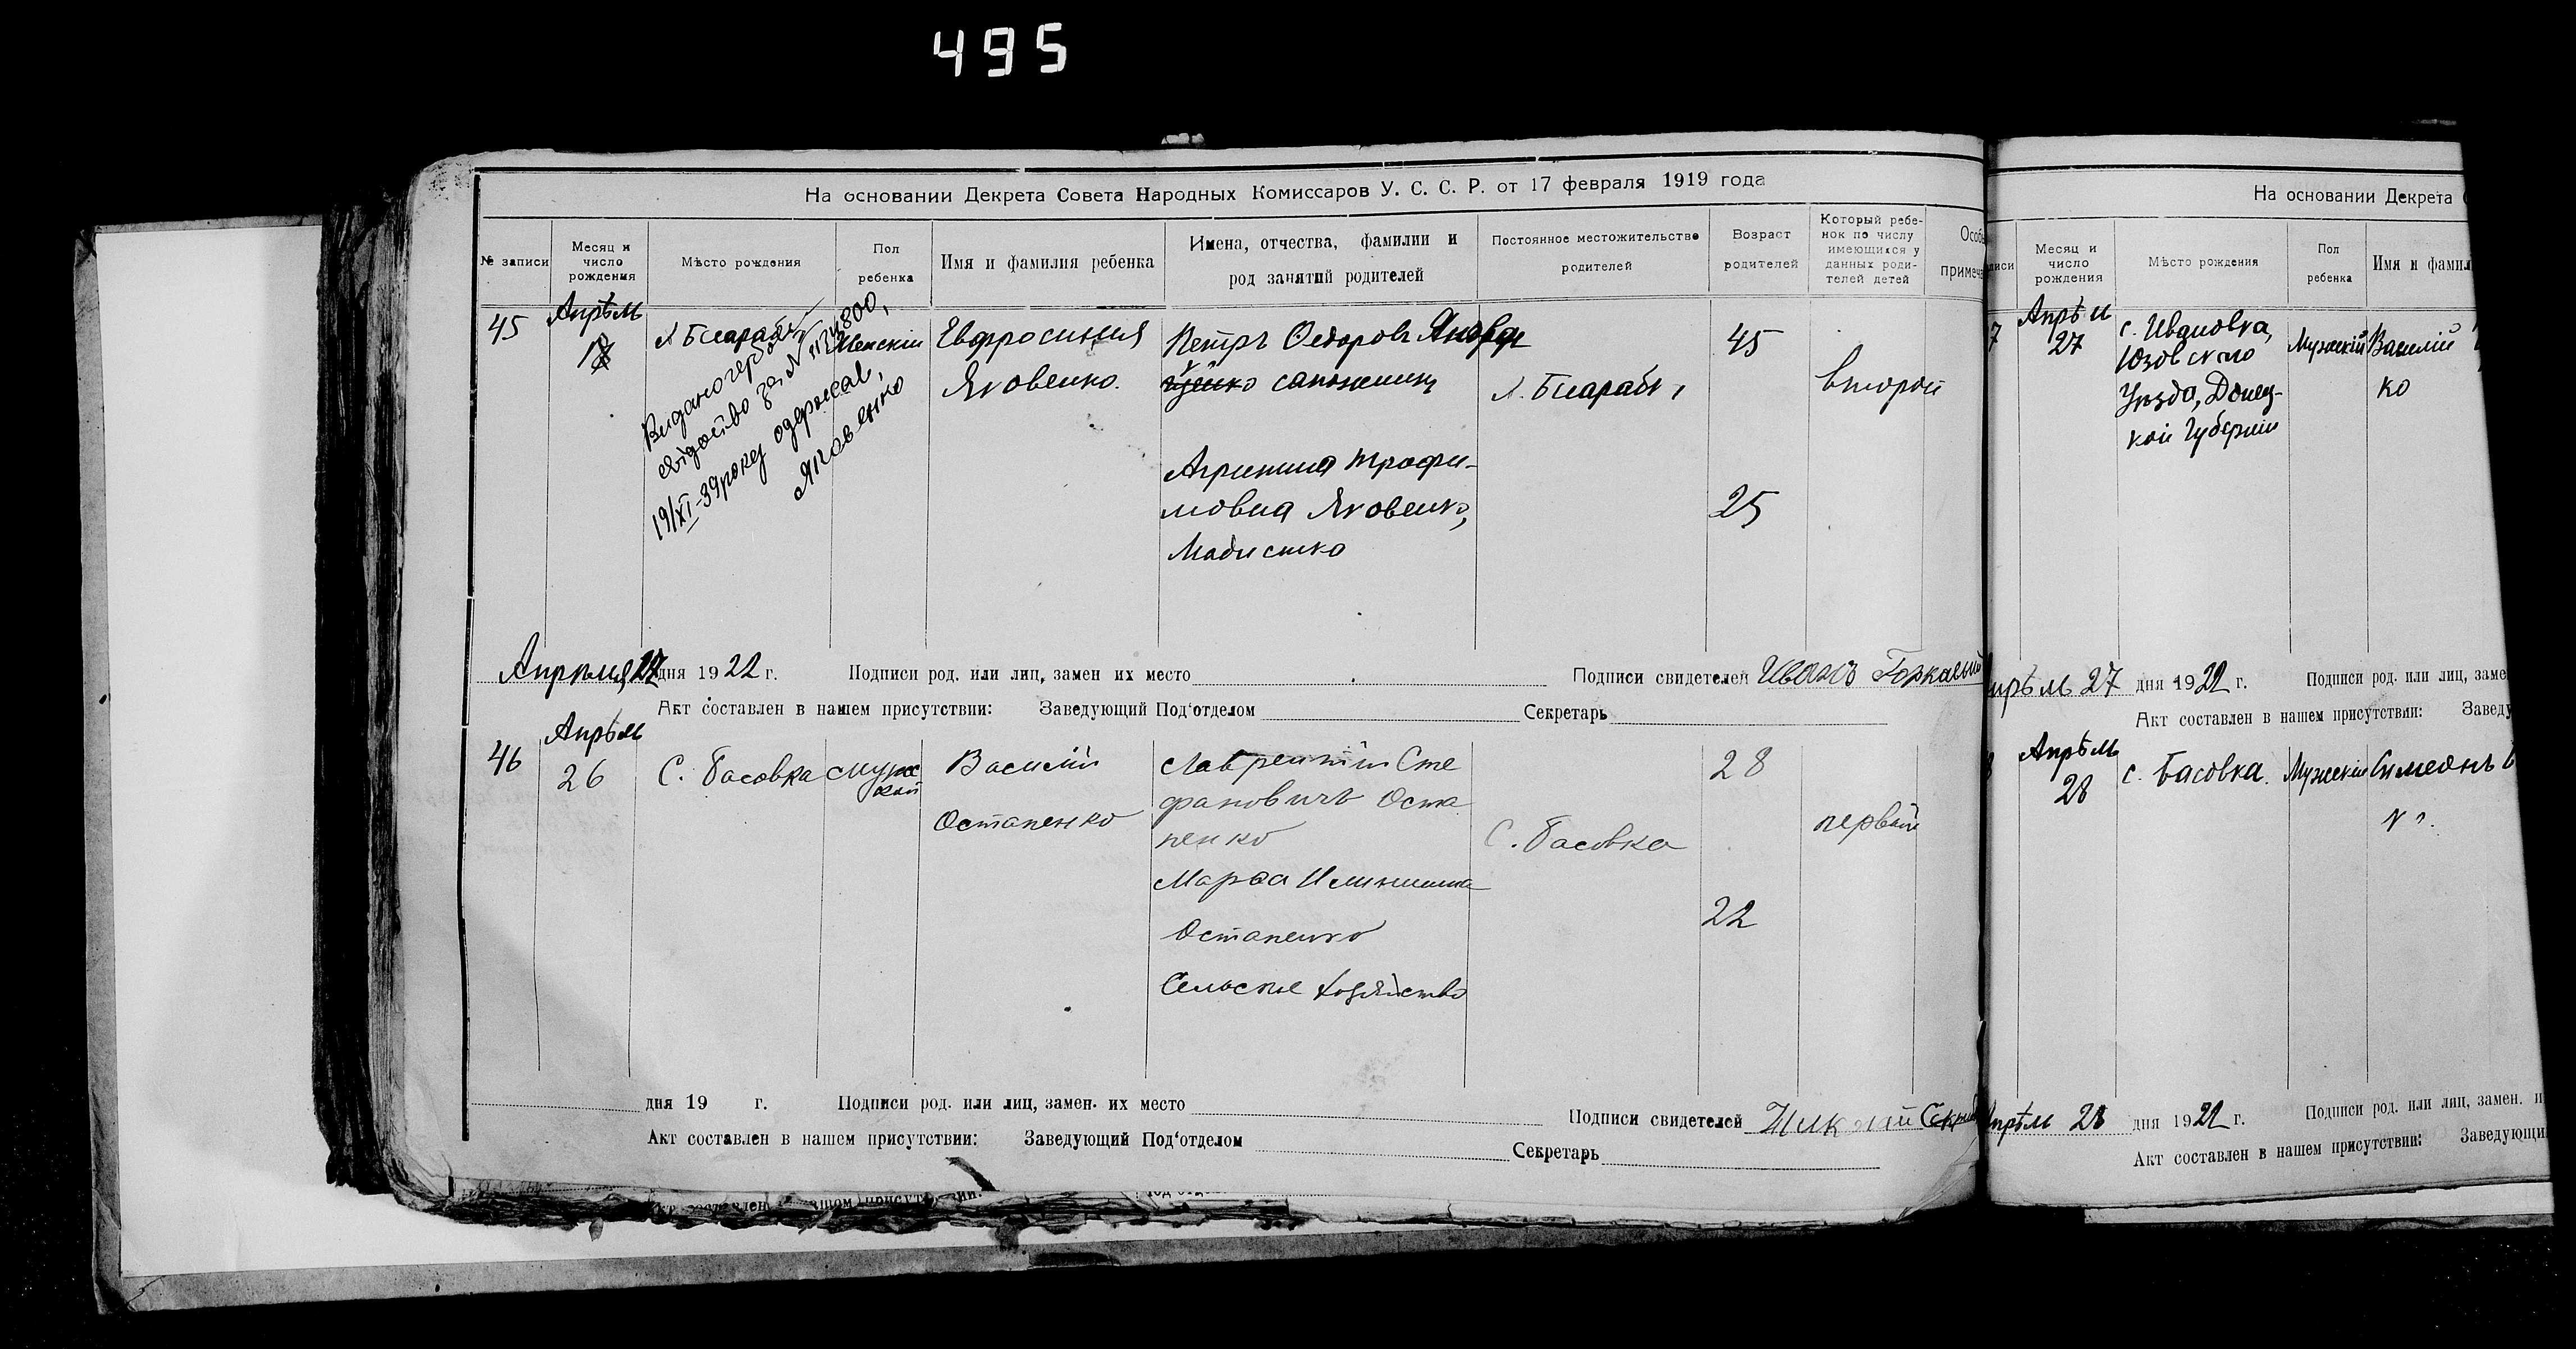 495
На основании Декрета Совета Народных Комиссаров У. С. С. Р. от 17 февраля 1919 года
№ записи
Месяц и
число
рождения
Мѣсто рождения
Пол
ребенка
Имя и фамилия ребенка
Имена, отчества, фамилии и
род занятий родителей
Постоянное местожительство
родителей
Возраст
родителей
Который ребе-
нок по числу
имеющихся у
данных роди-
телей детей
Особы
примеча
45
Апрѣль
Женскій
Евфросинія
Яковенко.
Петръ Федоровъ
сапожникъ
Агрипина Трофи-
мовна Яковенко,
45
25
второй
Видано
свідоцтво за №
19/XI-39 року одержав,
Яковенко
Апрѣля 27 дня 1922 г.
Подписи род. или лиц, замен их место
Подписи свидетелей Иванъ
Акт составлен в нашем присутствии:
Заведующий Под'отделом
Секретарь
46
Апрѣль
26
С. Басовка
мужс
кой
Василій
Остапенко
Лаврентій Сте
фановичъ Оста
пенко
Марѳа
Остапенко
Сельское хозяйство
С. Басовка
28
22
первый
дня 19 г.
Подписи род. или лиц, замен. их место
Подписи свидетелей
Акт составлен в нашем присутствии:
Заведующий Под'отделом
Секретарь
На основании Декрета С
писи
Месяц и
число
рождения
Мѣсто рождения
Пол
ребенка
Имя и фамил
7
Апрѣль
27
с. Ивановка,
Юзовскаго
Уѣзда, Донец-
кой Губерніи
Мужскій
Василій
ко
прѣль 27 дня 1922 г.
Подписи род. или лиц, заме
Акт составлен в нашем присутствии:
Заведу
8
Апрѣль
28
с. Басовка.
Мужскій
Симеонъ
прѣль 28 дня 1922 г.
Подписи род. или лиц, замен. и
Акт составлен в нашем присутствии:
Заведующи